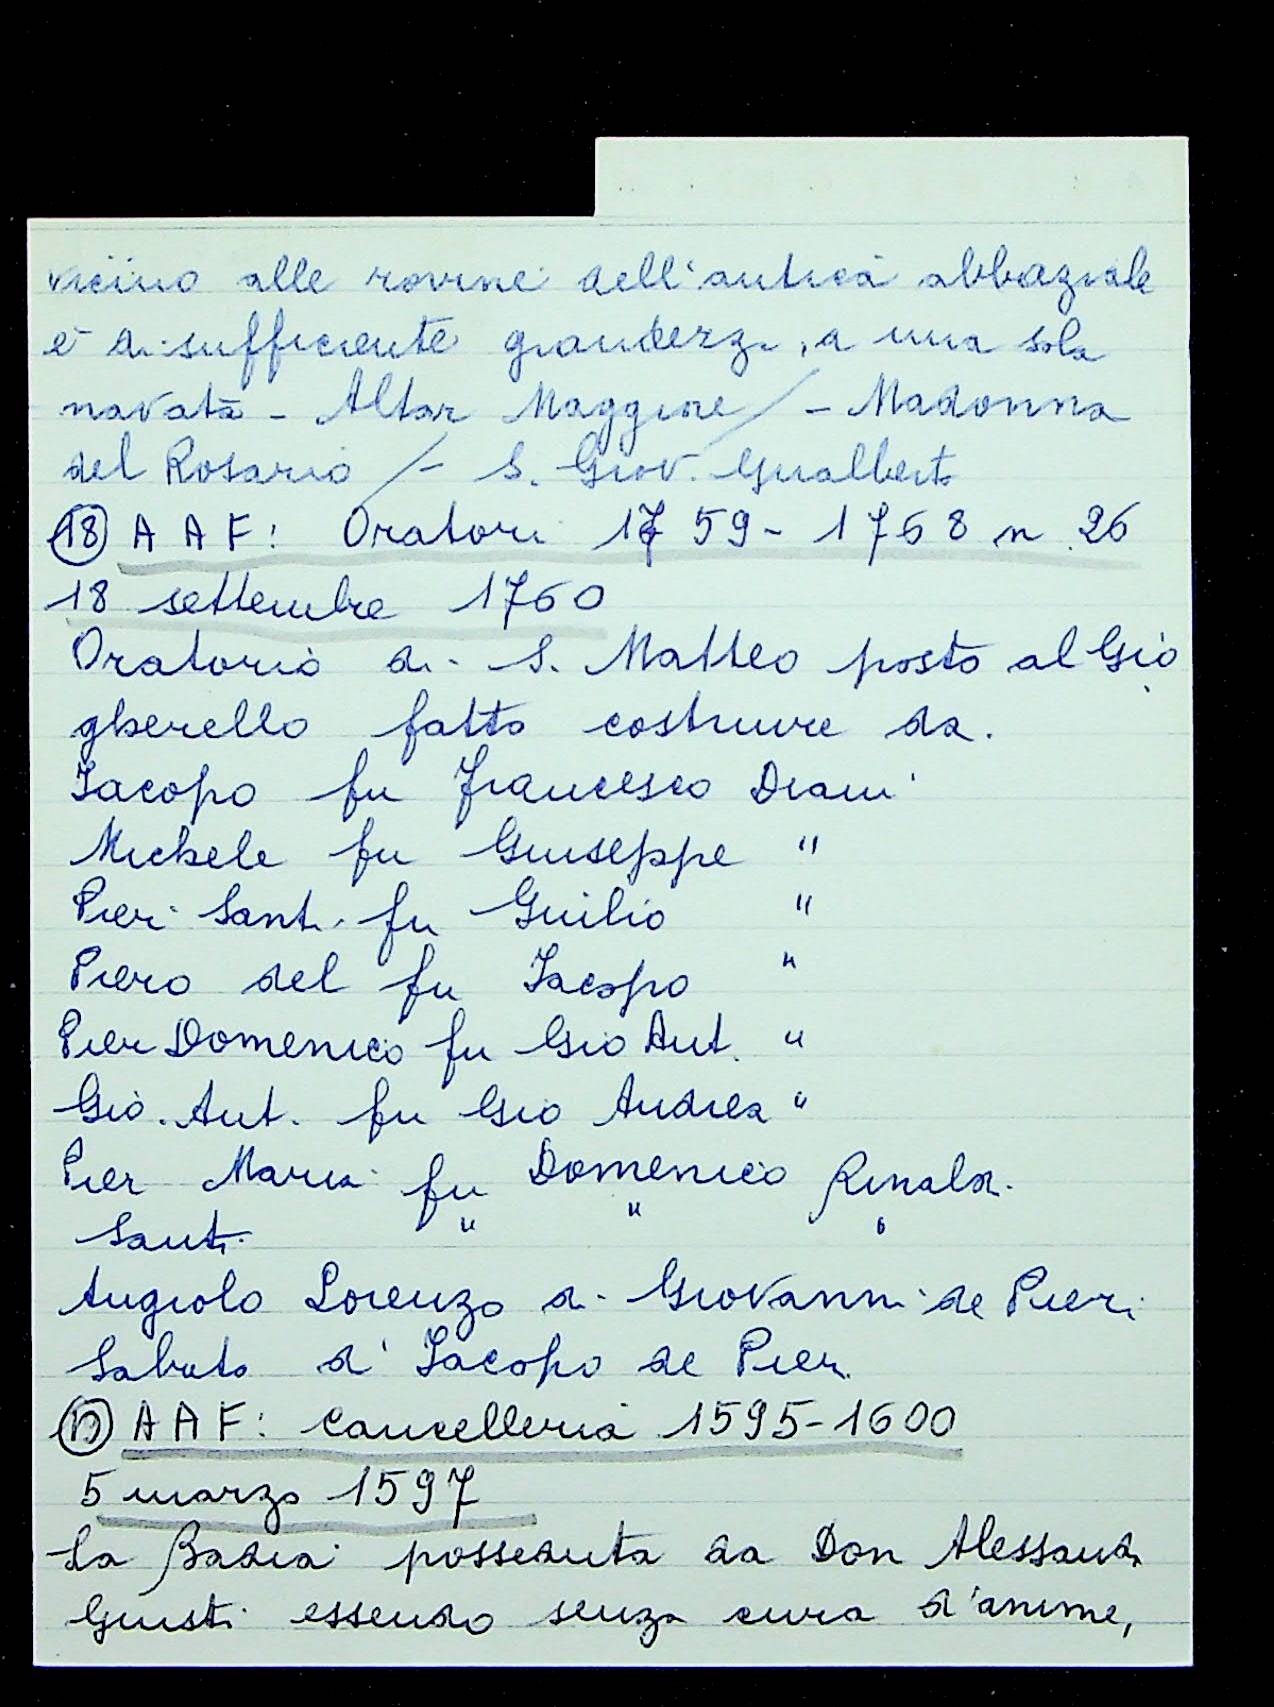 vicino alle rovine dell'antica abbaziale
è di sufficiente grandezza, a una sola
navata - Altar Maggiore / - Madonna
del Rosario / - S. Giov. Gualberto
18 A A F: Oratori 1759 - 1768 n. 26
18 settembre 1760
Oratorio di S. Matteo posto al Gio
gherello fatto costruire da.
Iacopo fu Francesco Diani
Michele fu Giuseppe "
Pier Santi fu Guilio "
Piero del fu Iacopo "
Pier Domenico fu Gio Ant. "
Gio. Ant. fu Gio Andrea "
Pier Maria fu Domenico Rinaldi
Santi " " "
Angiolo Lorenzo di Giovanni de Pieri
Sabato d' Iacopo de Pieri
A A F: Cancelleria 1595-1600
5 marzo 1597
La Badia posseduta da Don Alessand.
Giusti essendo senza cura d'anime,